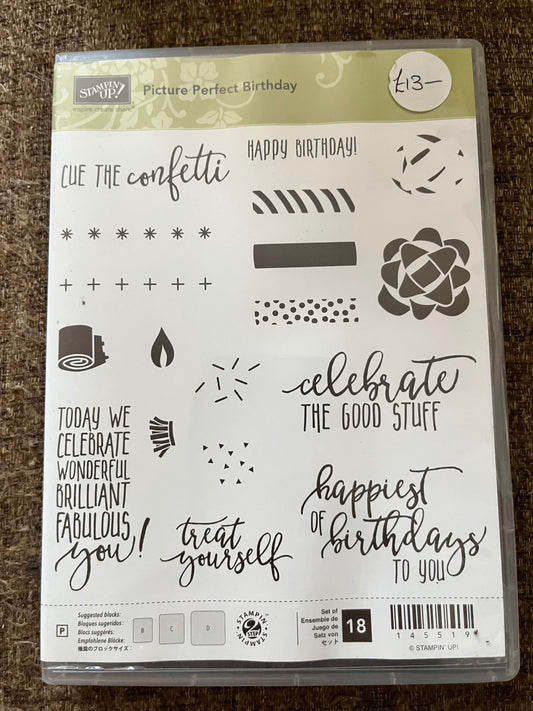 STAMPIN' UP!
inspire. create. share.
Picture Perfect Birthday
£13-
CUE THE confetti
HAPPY BIRTHDAY!
celebrate
THE GOOD STUFF
TODAY WE
CELEBRATE
WONDERFUL
BRILLIANT
FABULOUS
you!
treat
yourself
happiest
OF birthdays
TO YOU
P
Suggested blocks:
Bloques sugeridos:
Blocs suggérés:
Empfohlene Blöcke:
推奨のブロックサイズ:
B
C
D
STAMPIN' UP!
2 STEP
Set of
Ensemble de
Juego de
Satz von
セット
18
145519
© STAMPIN' UP!